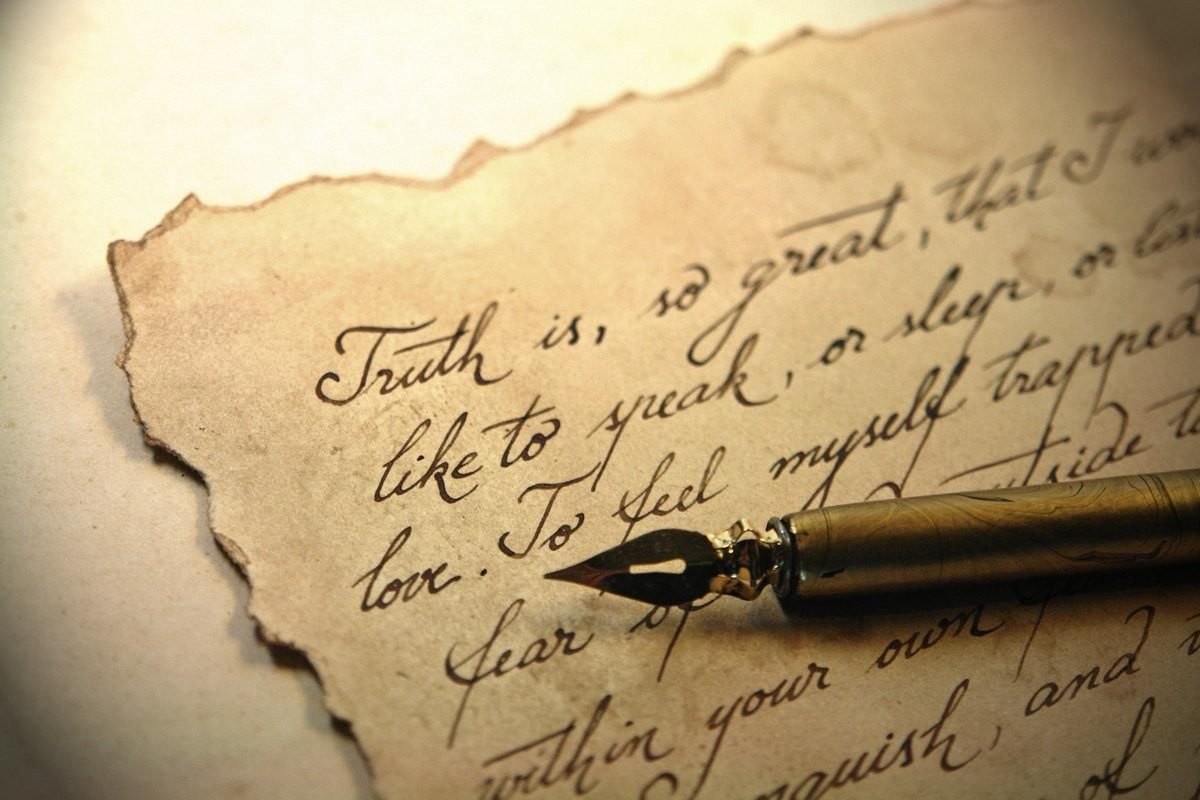 Truth is, so great, that I
like to speak, or sleep, or
love. To feel myself trapped
fear of
within your own
and
of